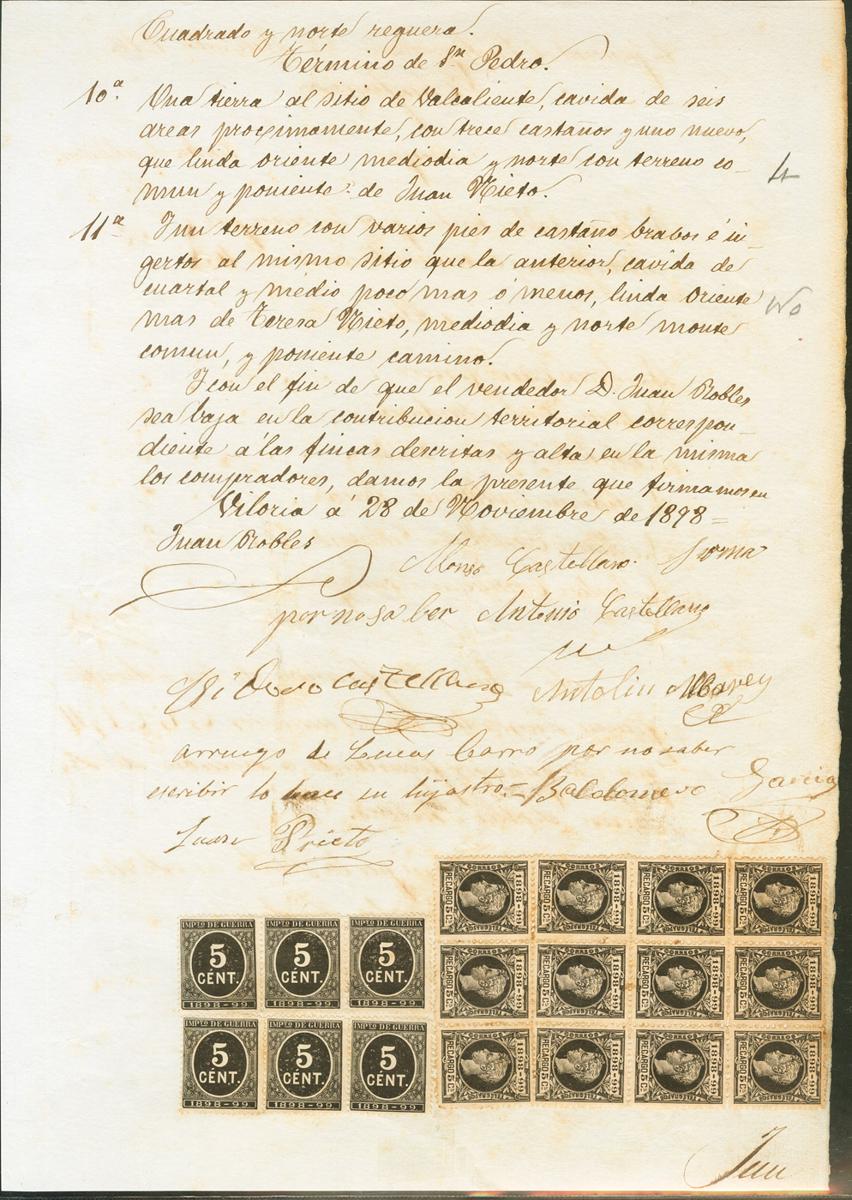 Cuadrado y norte reguera.
Término de Sn Pedro.
10ª Una tierra al sitio de Valcaliente, cavida de seis
areas procsimamente, con trece castaños y uno nuevo,
que linda oriente mediodia y norte con terreno co-
mun y poniente de Juan Nieto.
4
11ª I un terreno con varios pies de castaño brabos é in-
gertos al mismo sitio que la anterior, cavida de
cuartal y medio poco mas ó menos, linda oriente
mas de Teresa Nieto, mediodia y norte monte
comun, y poniente camino.
I con el fin de que el vendedor D. Juan Robles
sea baja en la contribucion territorial correspon-
diente á las fincas descritas y alta en la misma
los compradores, damos la presente que firmamos en
Viloria á 28 de Noviembre de 1898=
Juan Robles
Alonso Castellano. firma
por no saber Antonio Castellano
Isidoro Castellano Antolin
arruego de Lucas Carro por no saber
escribir lo hace su hijastro.= Baldomero Garcia
Juan Prieto
IMPTO DE GUERRA IMPTO DE GUERRA IMPTO DE GUERRA
5 CENT. 5 CENT. 5 CENT.
1898-99 1898-99 1898-99
IMPTO DE GUERRA IMPTO DE GUERRA IMPTO DE GUERRA
5 CENT. 5 CENT. 5 CENT.
1898-99 1898-99 1898-99
CORREOS CORREOS CORREOS CORREOS
RECARGO 5 Cs 1898-99 RECARGO 5 Cs 1898-99 RECARGO 5 Cs 1898-99 RECARGO 5 Cs 1898-99
TELEGRAFOS TELEGRAFOS TELEGRAFOS TELEGRAFOS
RECARGO 5 Cs 1898-99 RECARGO 5 Cs 1898-99 RECARGO 5 Cs 1898-99 RECARGO 5 Cs 1898-99
RECARGO 5 Cs 1898-99 RECARGO 5 Cs 1898-99 RECARGO 5 Cs 1898-99 RECARGO 5 Cs 1898-99